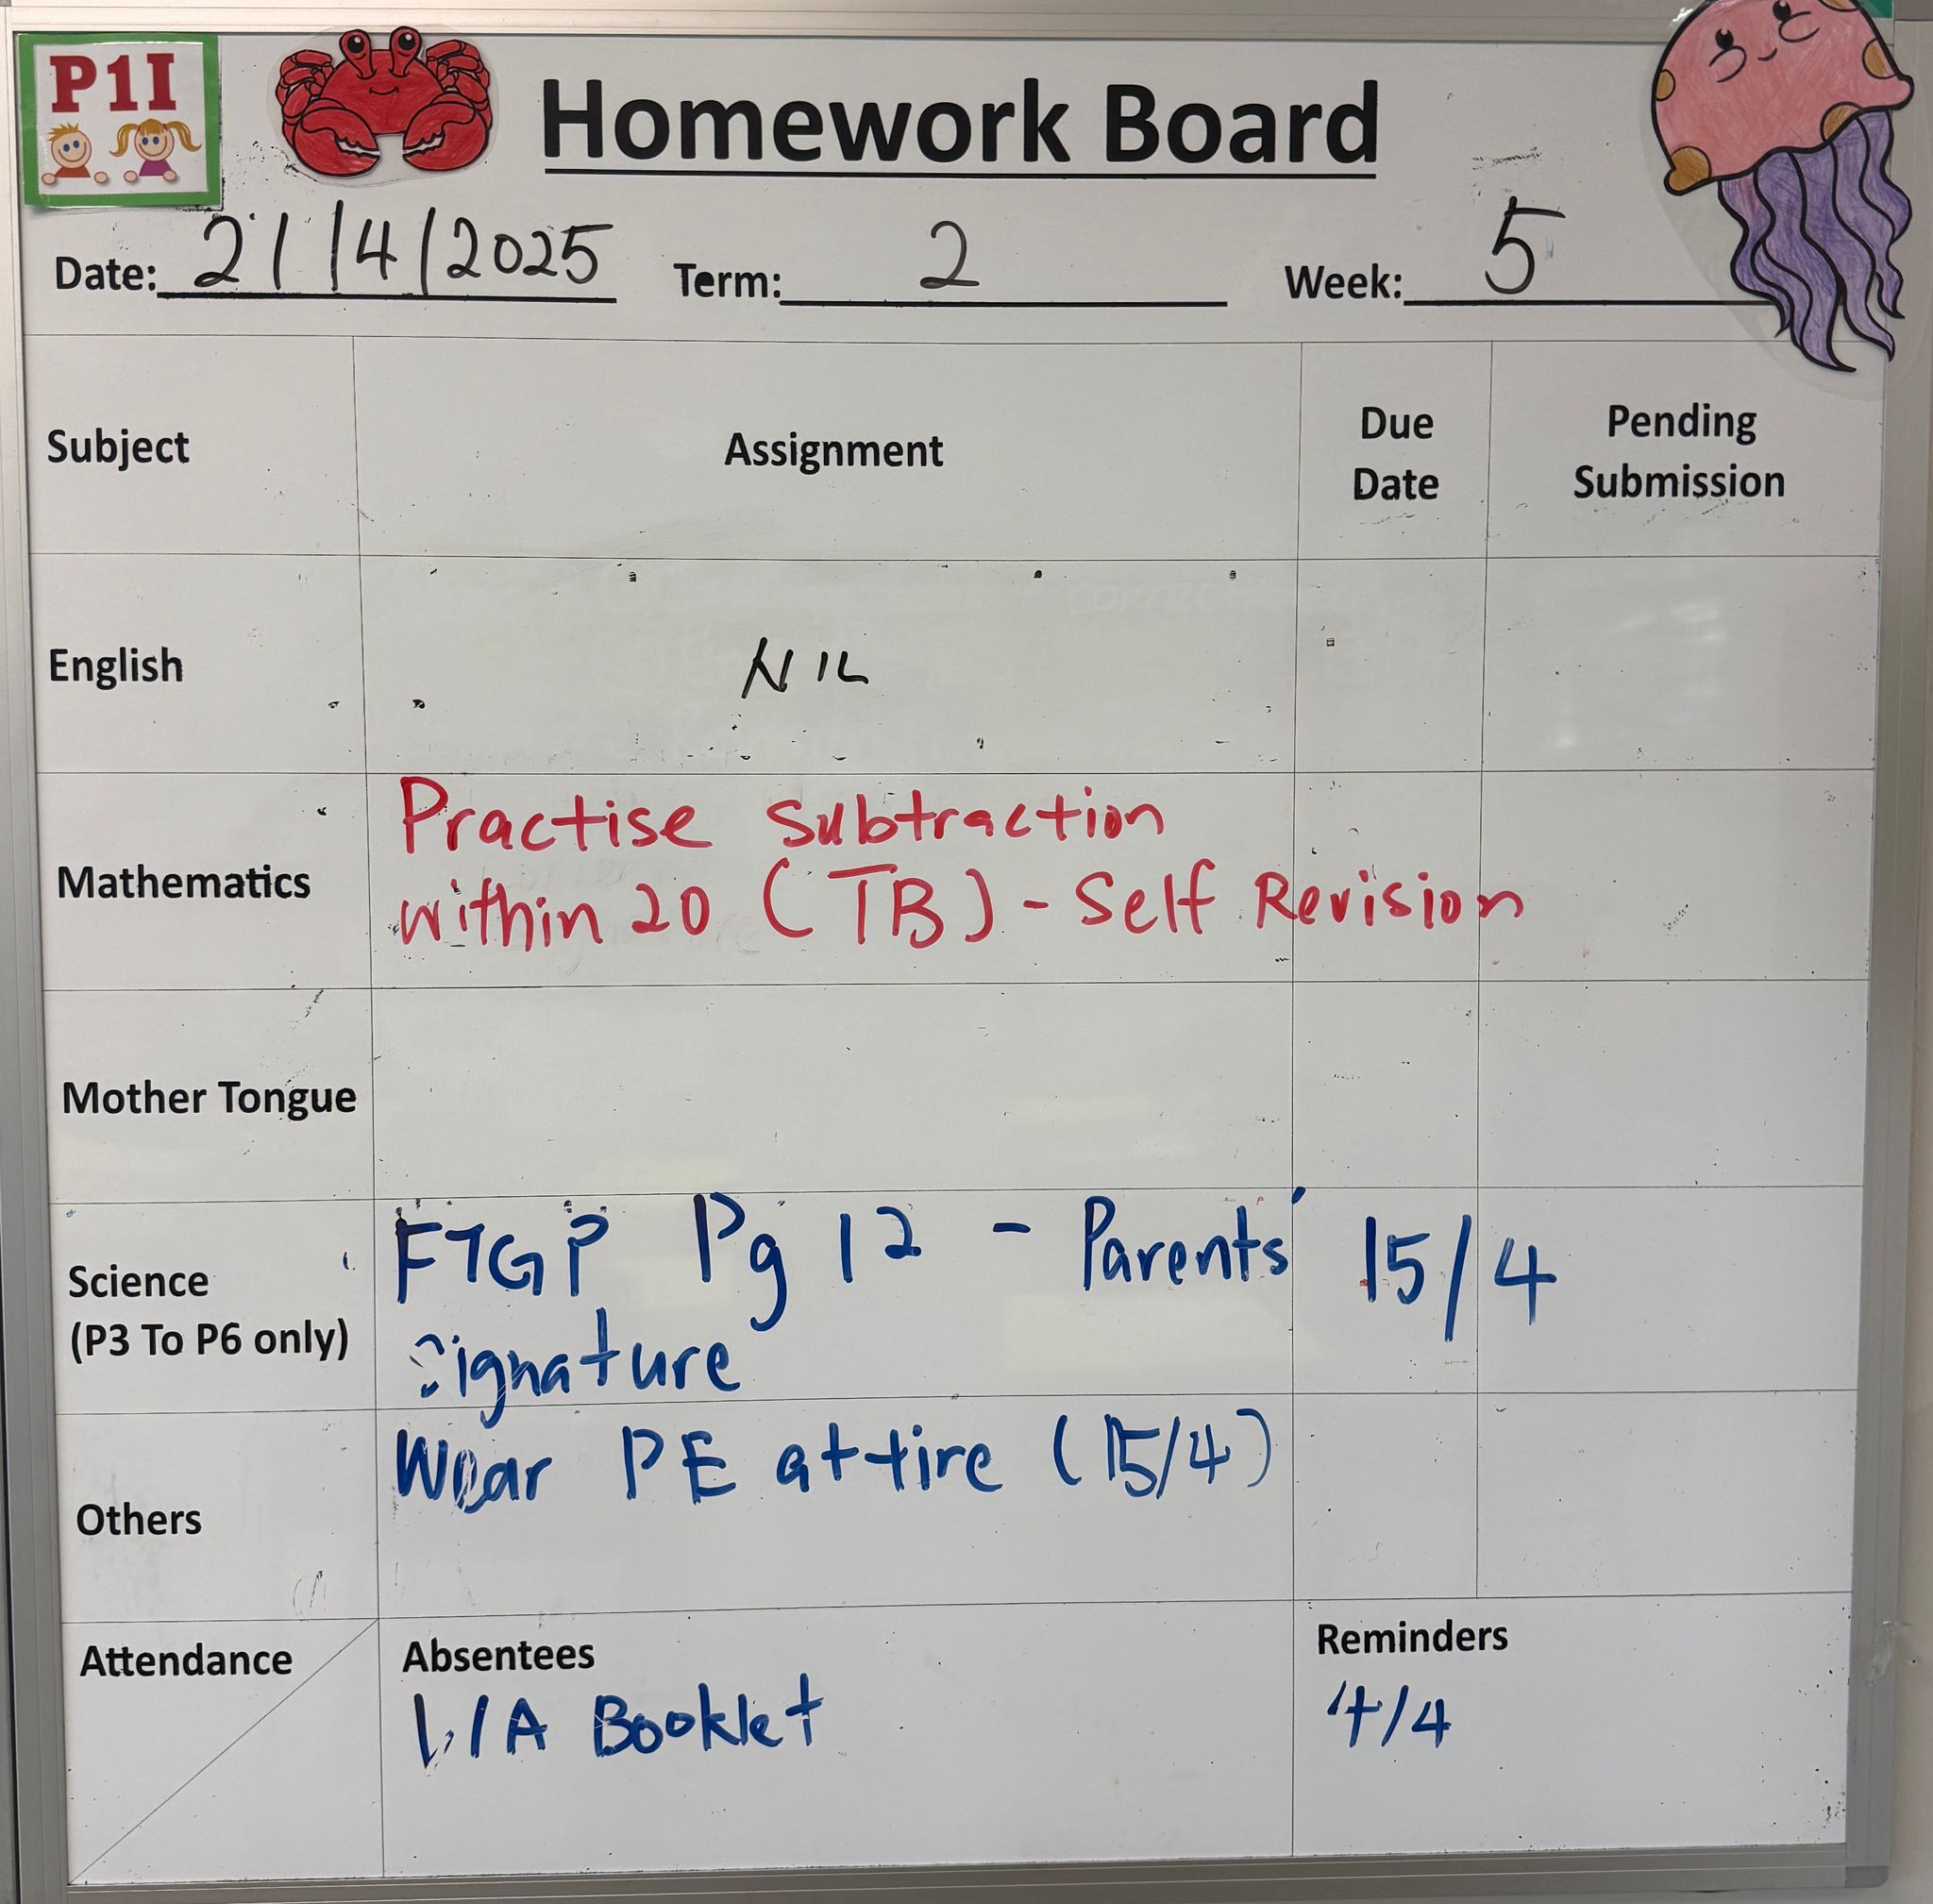 P1I
Homework Board
Date: 21/4/2025 Term: 2 Week: 5
Subject Assignment Due Date Pending Submission
English NIL
Mathematics Practise subtraction
within 20 (TB) - Self Revision
Mother Tongue
Science
(P3 To P6 only)
FTGP Pg 12 - Parents' 15/4
signature
Others
Wear PE attire (15/4)
Attendance
Absentees
Booklet
Reminders